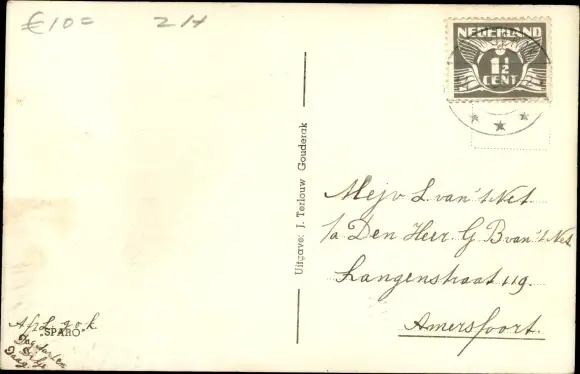 €10= 2H
NEDERLAND
1½
CENT
Uitgave: J. Terlouw Gouderak
Mejv L. van 't Net
p/a Den Heer G B van 't Net
Langenstraat 119.
Amersfoort.
"SPARO"